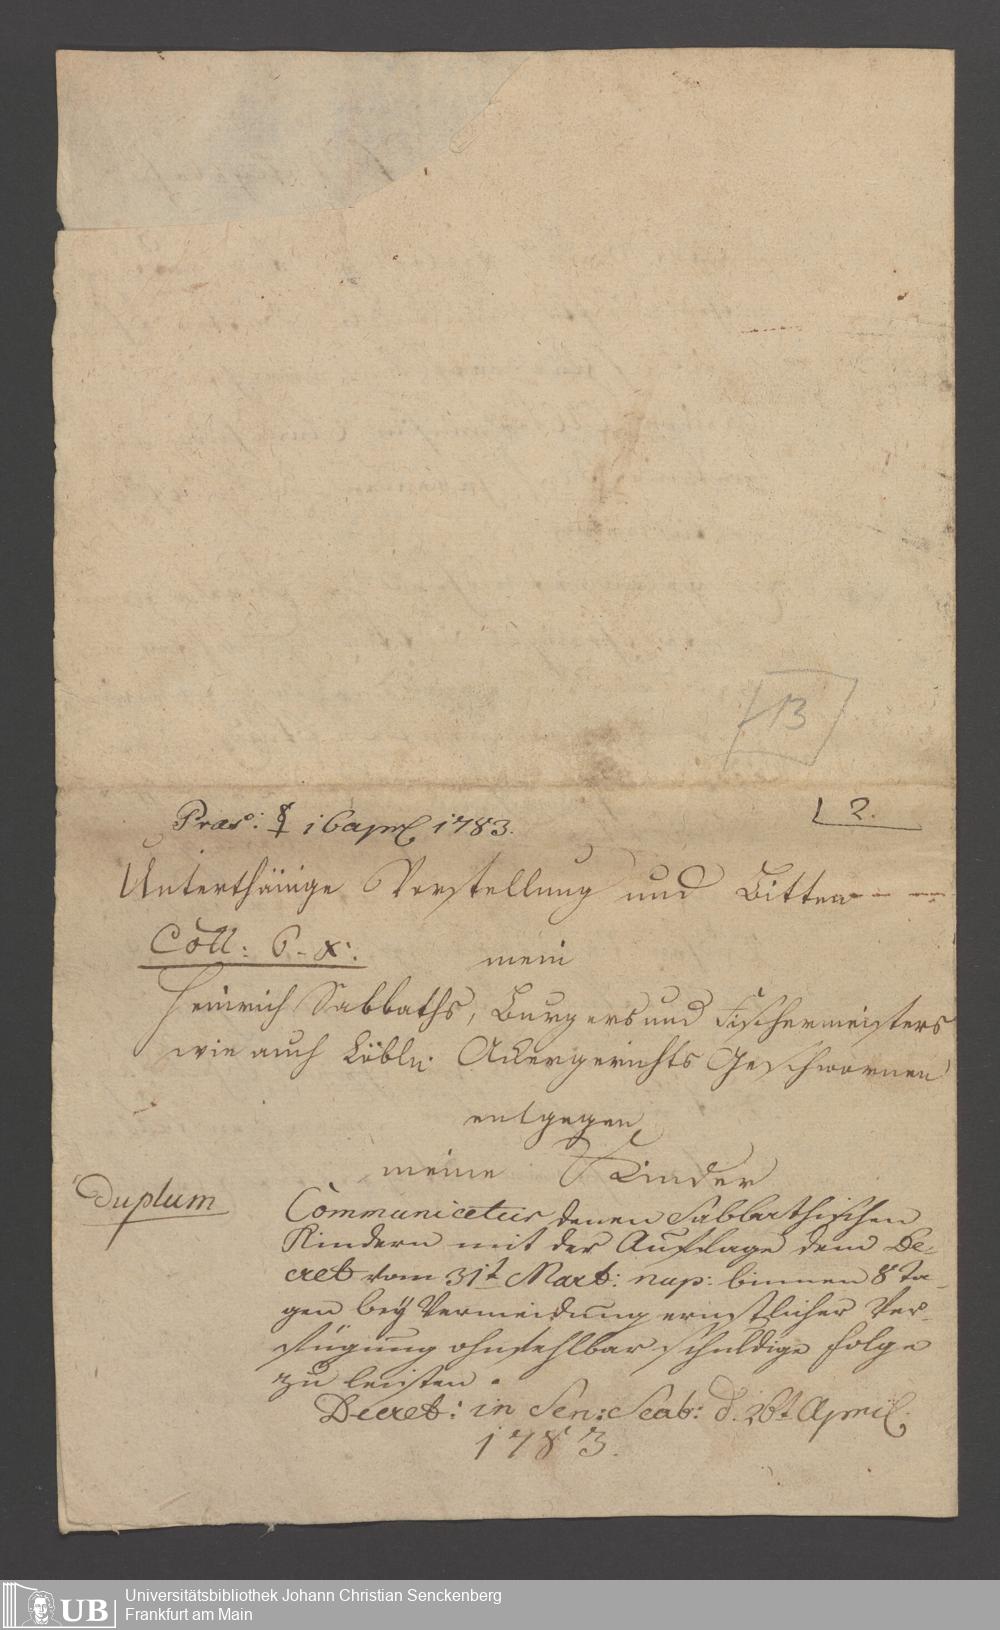 13
Præs: ☿ 16 April 1783.
2.
Unterthänige Vorstellung und Bitten
Coll: 6-x:
mein
Heinrich Sabbaths, Burgers und Fischermeisters
wie auch Löbln. Ackergerichts Geschwornen
entgegen
meine Kinder
Duplum
Communicetur denen Sabbathischen
Kindern mit der Auflage dem De-
cret vom 31t Mart: nup: binnen 8 Ta-
gen bey Vermeidung ernstlicher Ver-
fügung ohnfehlbar schuldige folge
zu leisten.
Decret: in Sen: Scab: d. 26t April
1783.
UB
Universitätsbibliothek Johann Christian Senckenberg
Frankfurt am Main